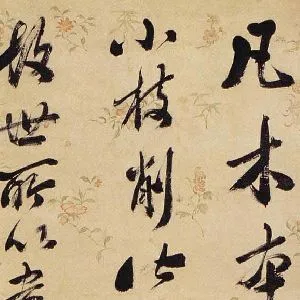 凡木本
小枝削
故世所以